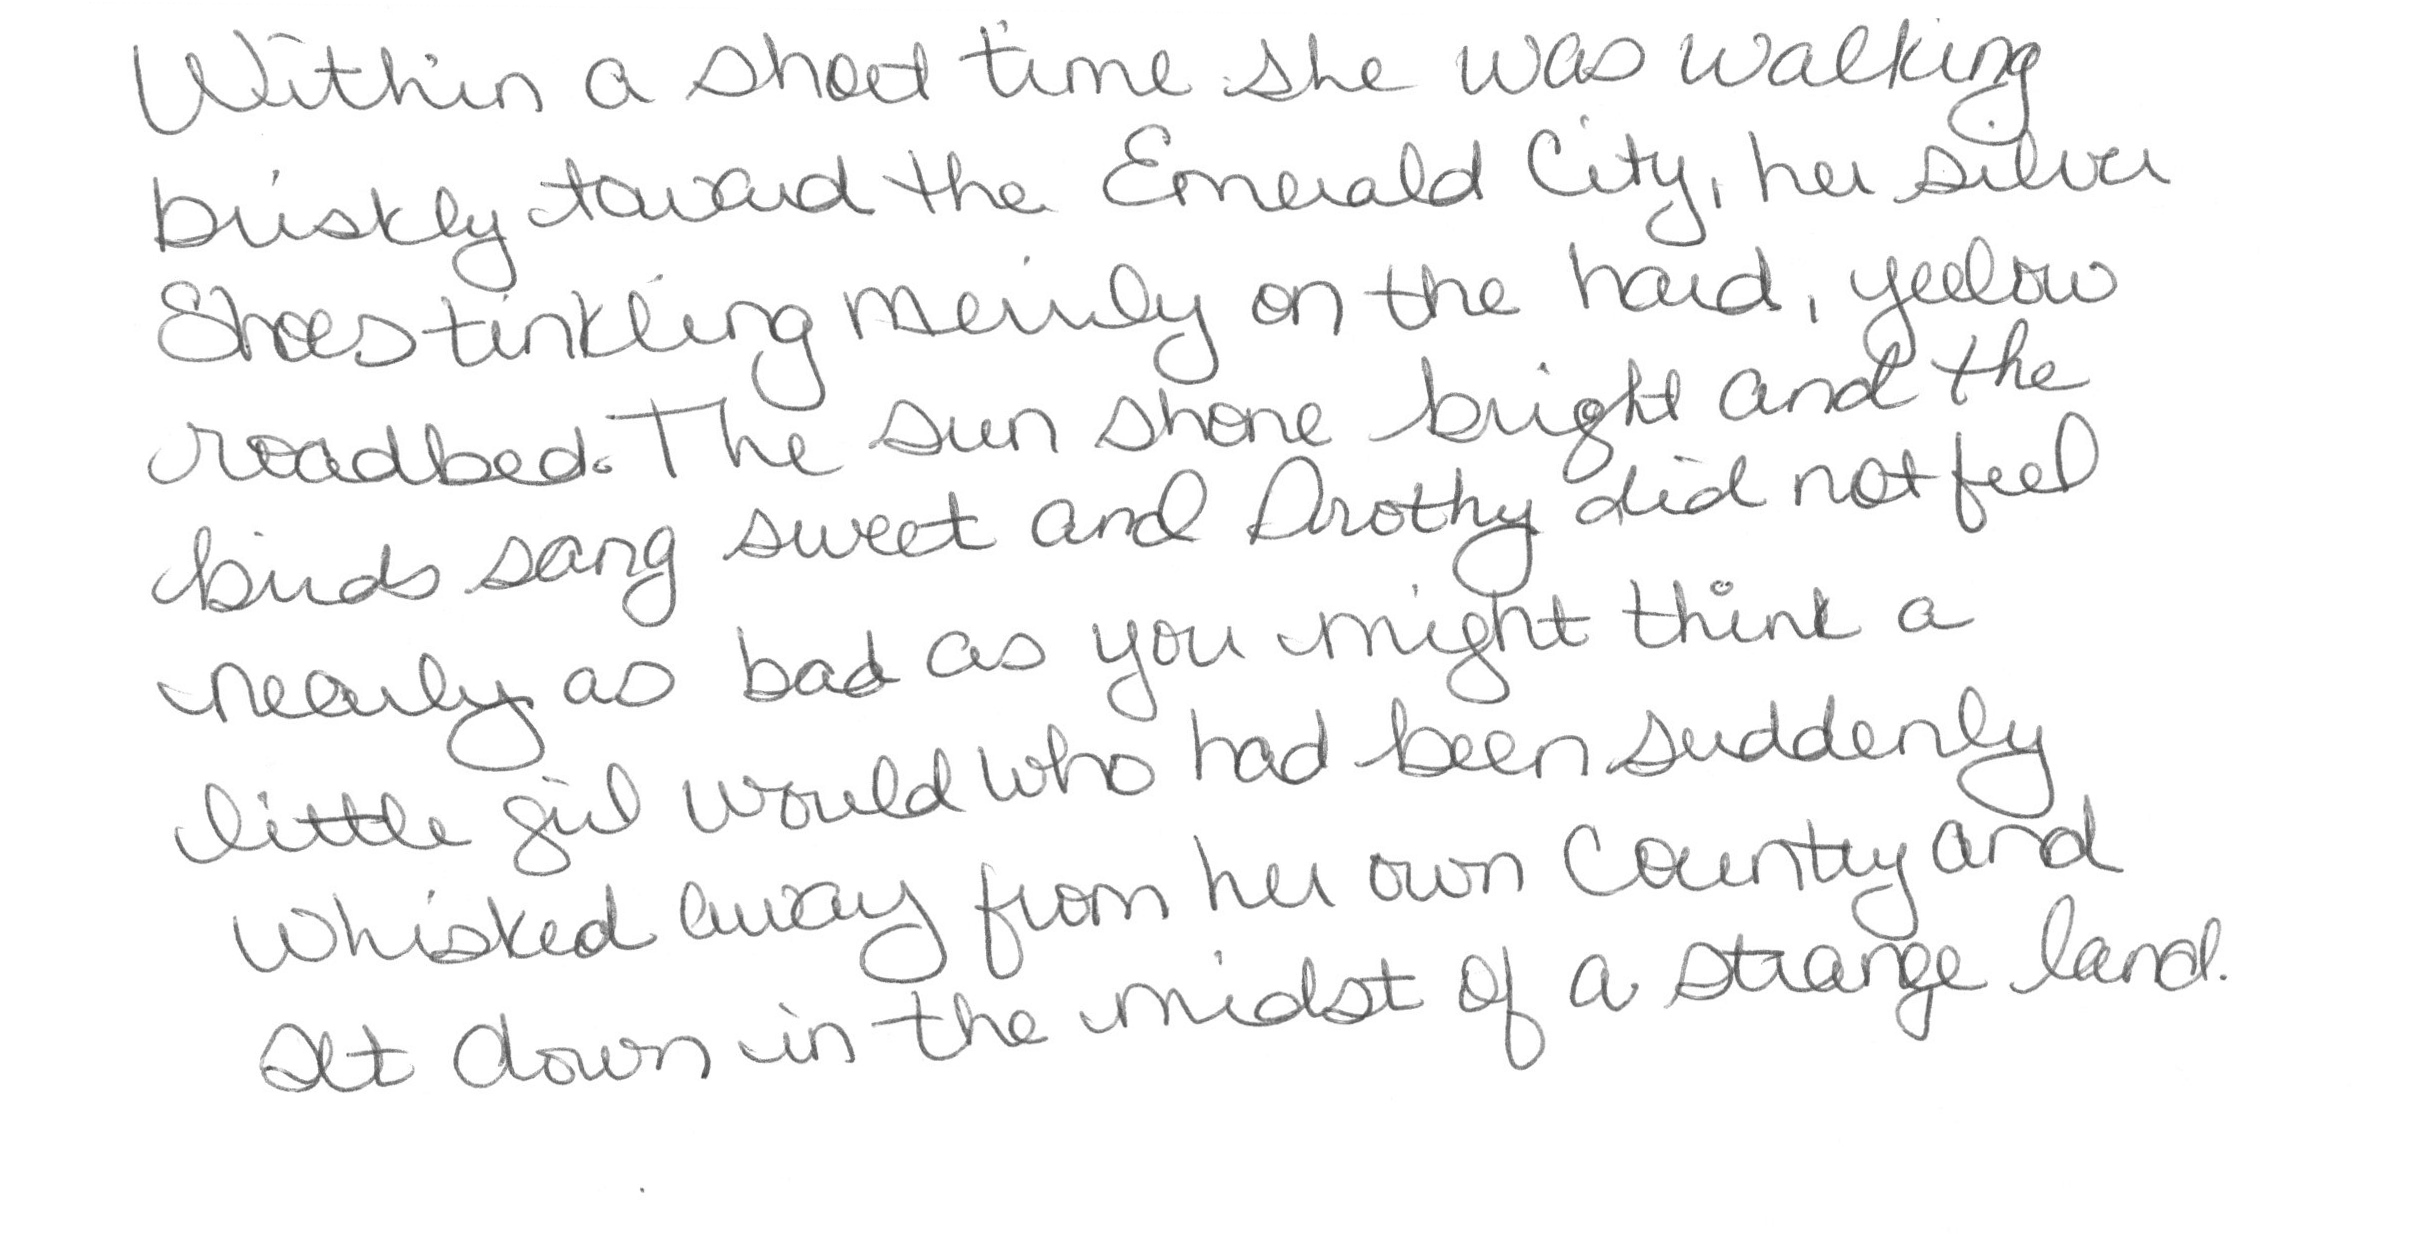 Within a short time she was walking
briskly toward the Emerald City, her silver
Shoes tinkling merrily on the hard, yellow
roadbed. The sun shone bright and the
birds sang sweet and Dorothy did not feel
nearly as bad as you might think a
little girl would who had been suddenly
whisked away from her own country and
set down in the midst of a strange land.